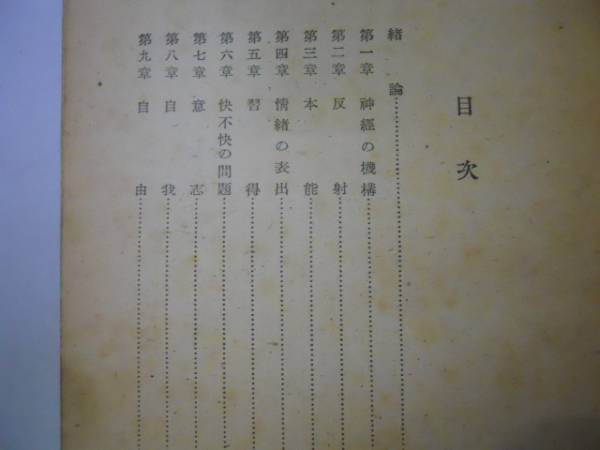 目次
緒論
第一章 神經の機構
第二章 反射
第三章 本能
第四章 情緒の表出
第五章 習得
第六章 快不快の問題
第七章 意志
第八章 自我
第九章 自由